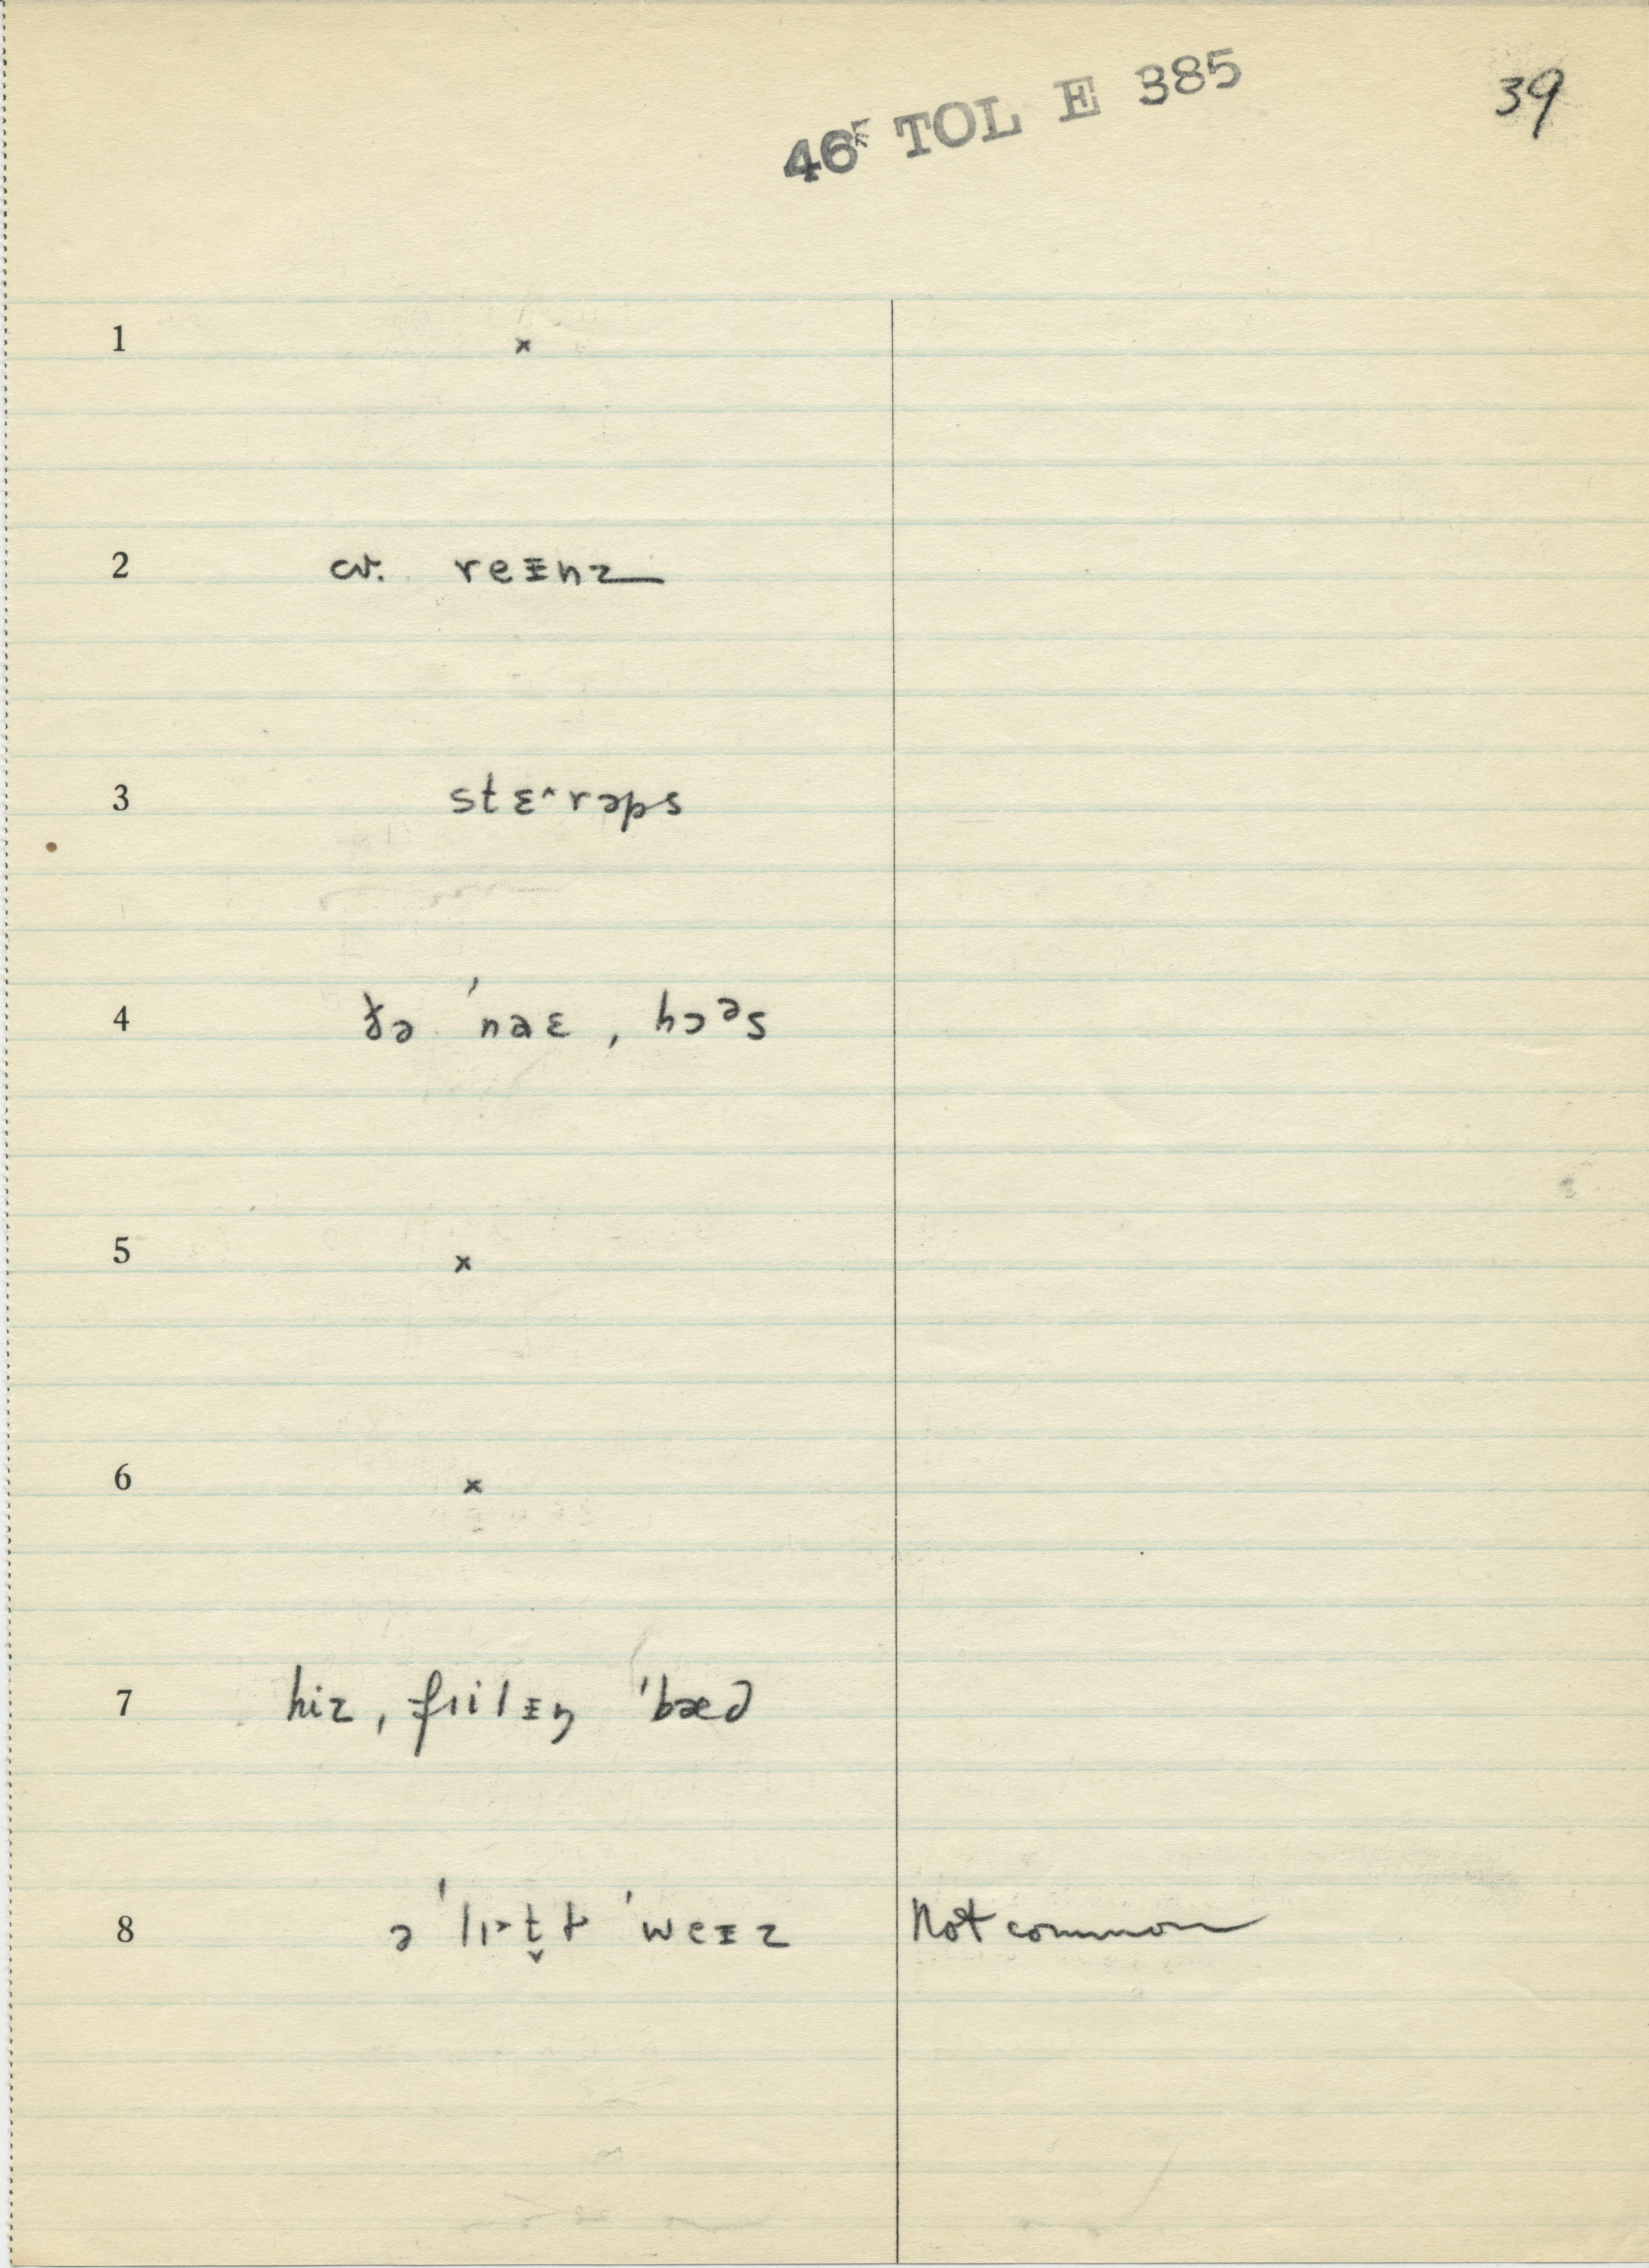 46 TOL E 385
39
1 ×
2 cv. reᵻnz
3 stɛ^rəps
4 ðə 'naɛ , hɔᵊs
5 ×
6 ×
7 hiz , fɪilᵻŋ 'bæd
8 ə 'lɪ>t̬ɫ 'weᵻz Not common